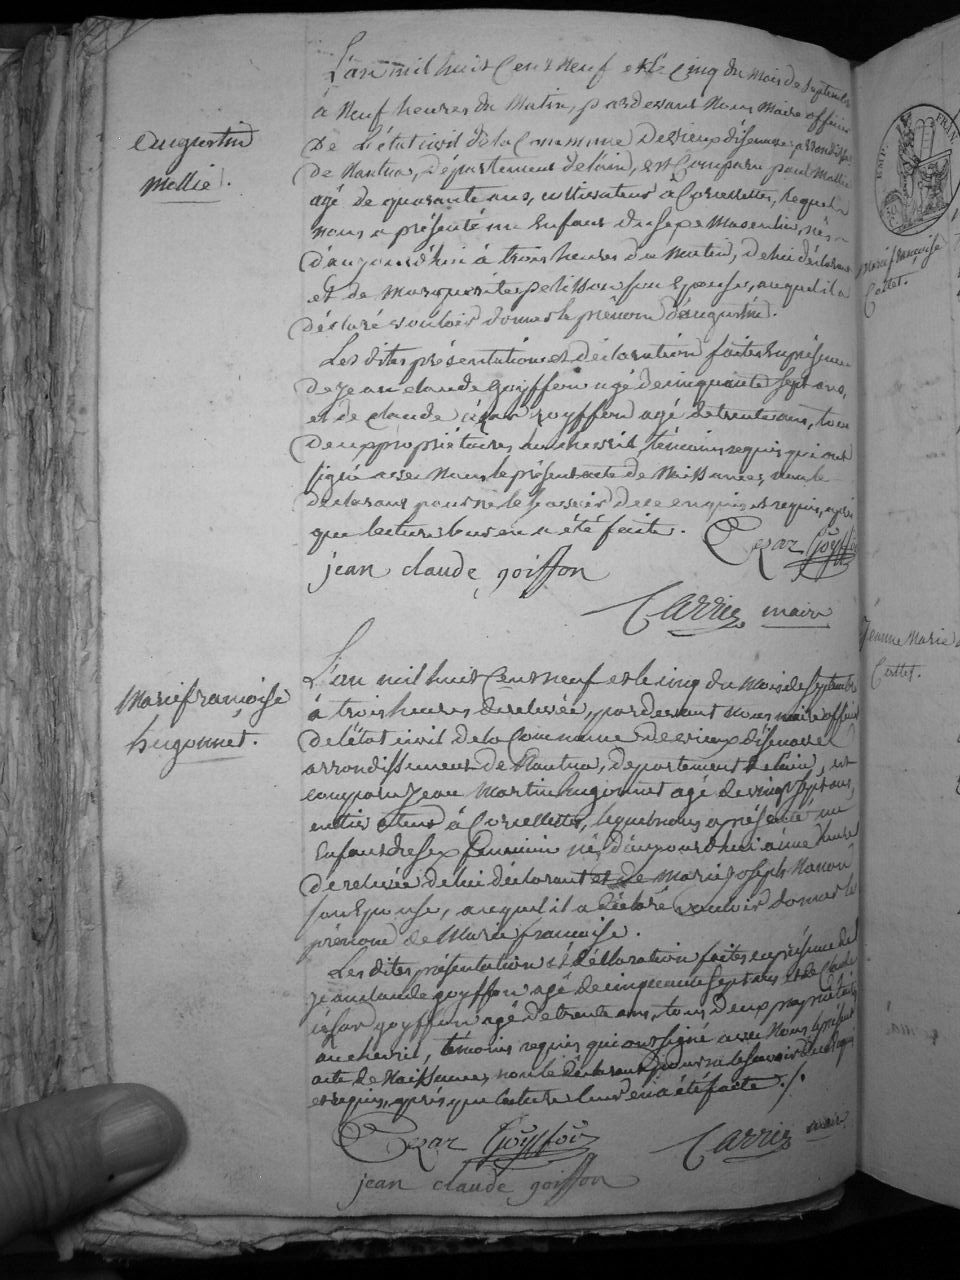 Augustin
Mollie.
L'an mil huit Cent Neuf et le Cinq du Mois de Septembre
à Neuf heures du Matin, pardevant Nous Maire officier
De L'état civil de la Commune De vieux d'isenave arrondiss
de Nantua, Département de lain, est Comparu paul Mollie
agé de quarante ans, cultivateur à Corcellettes, lequel
nous a présenté un Enfant du sexe Masculin, né
d'aujourd'hui à trois heures du Matin, de lui déclarant
et de Marguerite pelisson son Epouse, auquel il a
déclaré vouloir donner le prénom d'augustin.
Les dites présentation et déclaration faites En présence
de Jean claude Goyffon agé de cinquante Sept ans,
et de claude césar goyffon agé de trente ans, tous
Deux propriétaires au chevril, témoins requis qui ont
signé avec Nous le présent acte de Naissance, non le
déclarant pour ne le savoir de ce enquis et requis, après
que lecture leur en a été faite. Cezar Goÿffon
jean claude goiffon
Carrier maire
Marie françoise
hugonnet.
L'an mil huit Cent neuf et le cinq du Mois de Septembre
à trois heures de relevée, pardevant nous maire officier
De l'état civil de la Commune De vieux d'isenave
arrondissement de Nantua, département De lain, est
comparu Jean Martin hugonnet agé de vingt Sept ans,
cultivateur à Corcellettes, lequel nous a présenté un
Enfant de sexe feminin né d'aujourd'hui à une heure
De relevée de lui déclarant et de Marie Joseph Nanon
son Epouse, auquel il a déclaré vouloir donner le
prénom de Marie francoise.
Les dites présentation et déclaration faites en présence de
Jean claude goyffon agé de cinquante sept ans et de Claude
césar goyffon agé de trente ans, tous Deux propriétaires
au chevril, témoins requis qui ont signé avec Nous le présent
acte de Naissance, non le déclarant pour ne le savoir de ce enquis
et requis, après que lecture leur en a été faite ./.
Cezar Goÿffon Carrier maire
jean claude goiffon
EMP. FRAN.
Marie françoise
Collet.
Jeanne Marie
Collet.